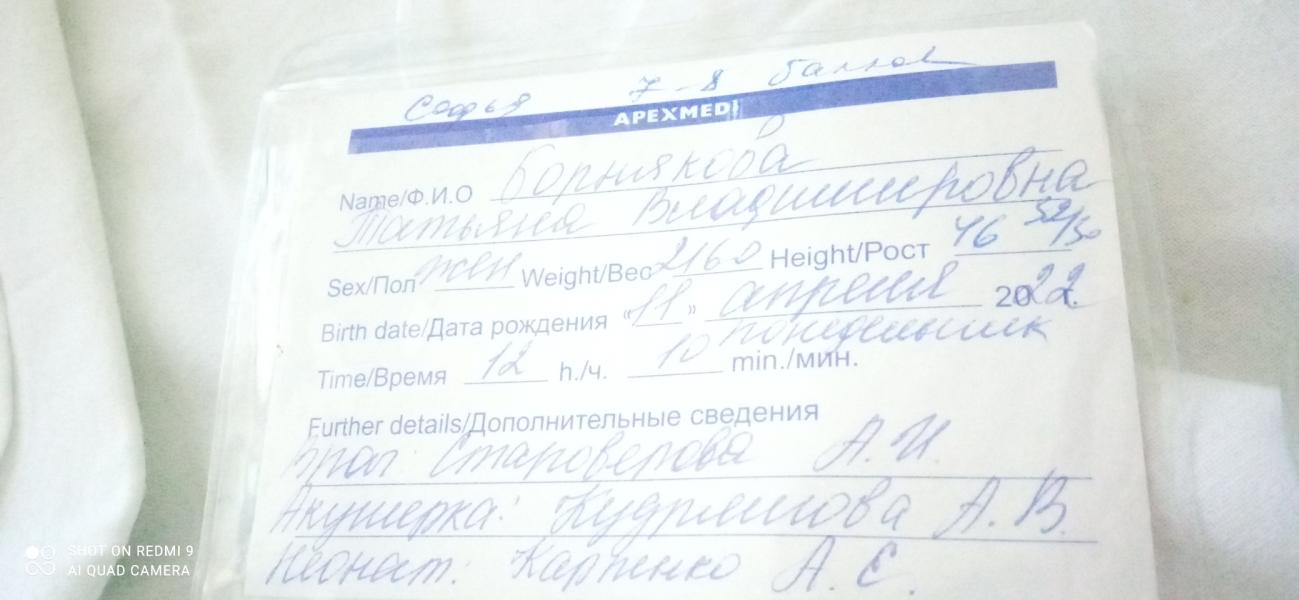 Софья 7-8 баллов
APEXMEDi
Name/Ф.И.О Борнякова
Татьяна Владимировна
Sex/Пол жен Weight/Вес 2160 Height/Рост 46 32/30
Birth date/Дата рождения "11" апреля 2022г.
понедельник
Time/Время 12 h./ч. 10 min./мин.
Further details/Дополнительные сведения
Врач: Староверова А.И.
Акушерка: Кудряшова А.В.
Неонат.: Карпенко А.Е.
SHOT ON REDMI 9
AI QUAD CAMERA